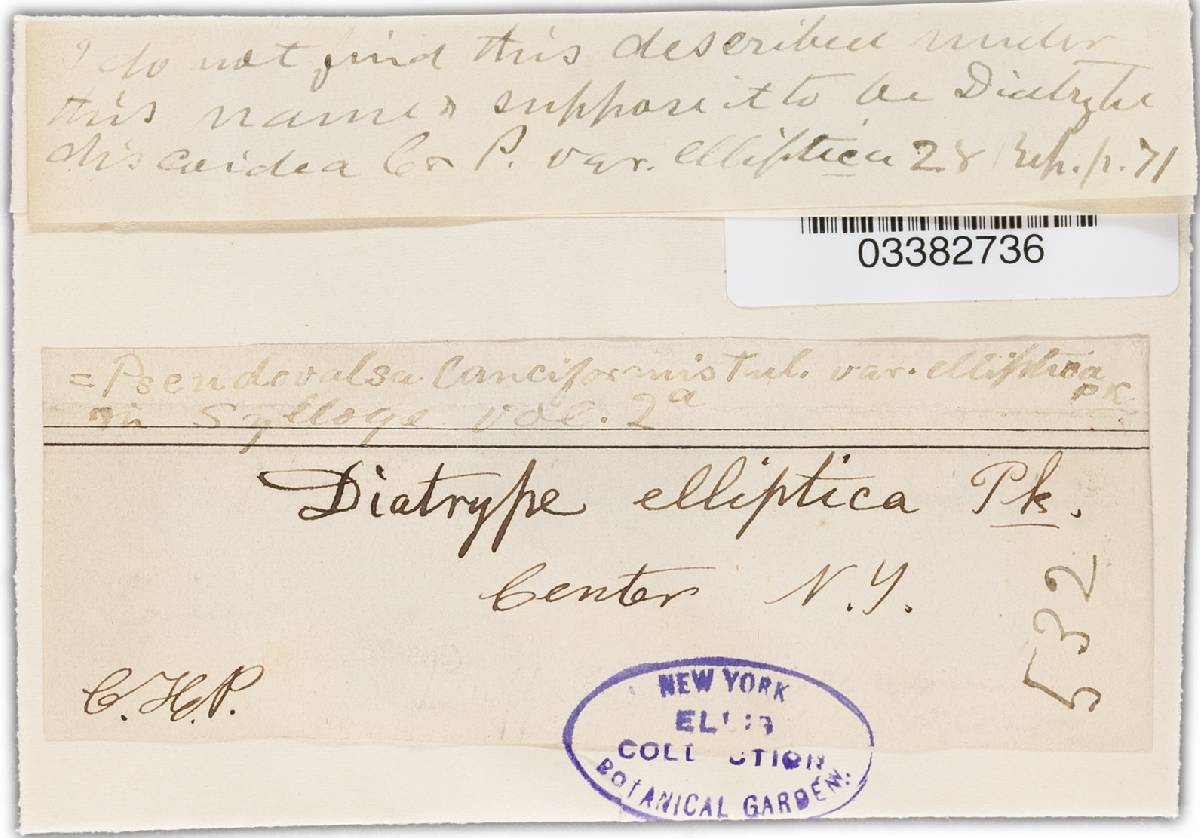 I do not find this described under
this name & suppose it to be Diatrype
discoidea C & P. var. elliptica 28 Rep. p. 71
03382736
= Pseudovalsa lanciformis Tul. var. elliptica
PK.
in Sylloge vol. 2ª
Diatrype elliptica Pk.
Center N.Y.
532
C.H.P.
NEW YORK
ELLIS
COLLECTION
BOTANICAL GARDEN.